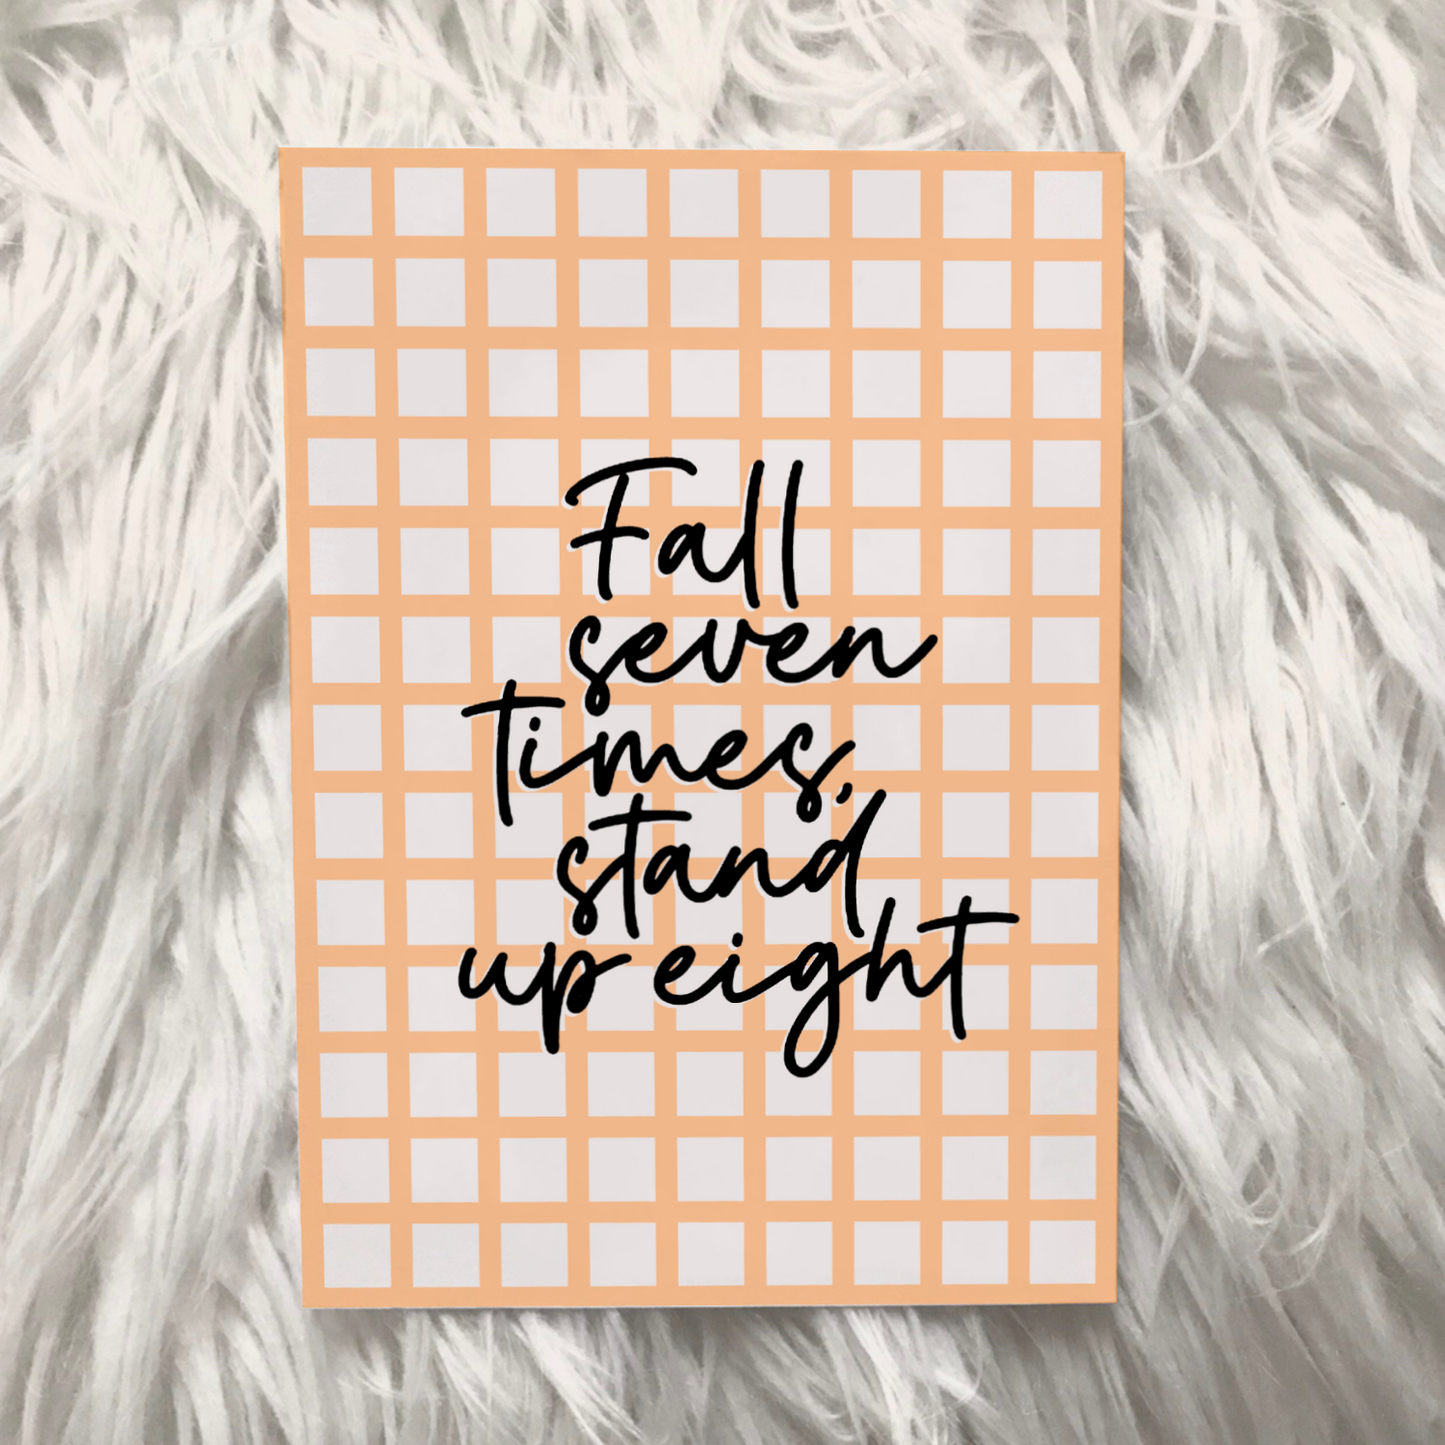 Fall
seven
times,
stand
up eight